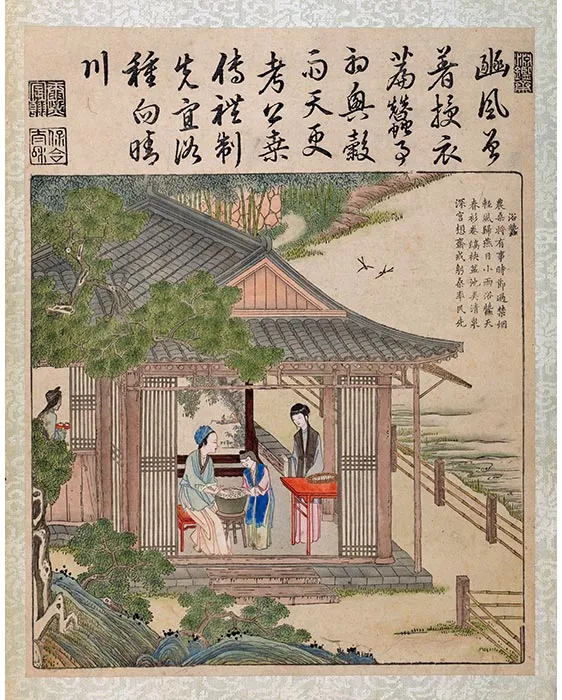 淵鑒齋
豳風曾
著授衣
篇蠶事
初興穀
雨天更
考公桑
傳禮制
先宜浴
種向晴
川
康熙宸翰
保合太和
浴蠶
農桑將有事時節過禁烟
輕風歸燕日小雨浴蠶天
春衫卷縞袂盆池弄清泉
深宮想齋戒躬桑率民先